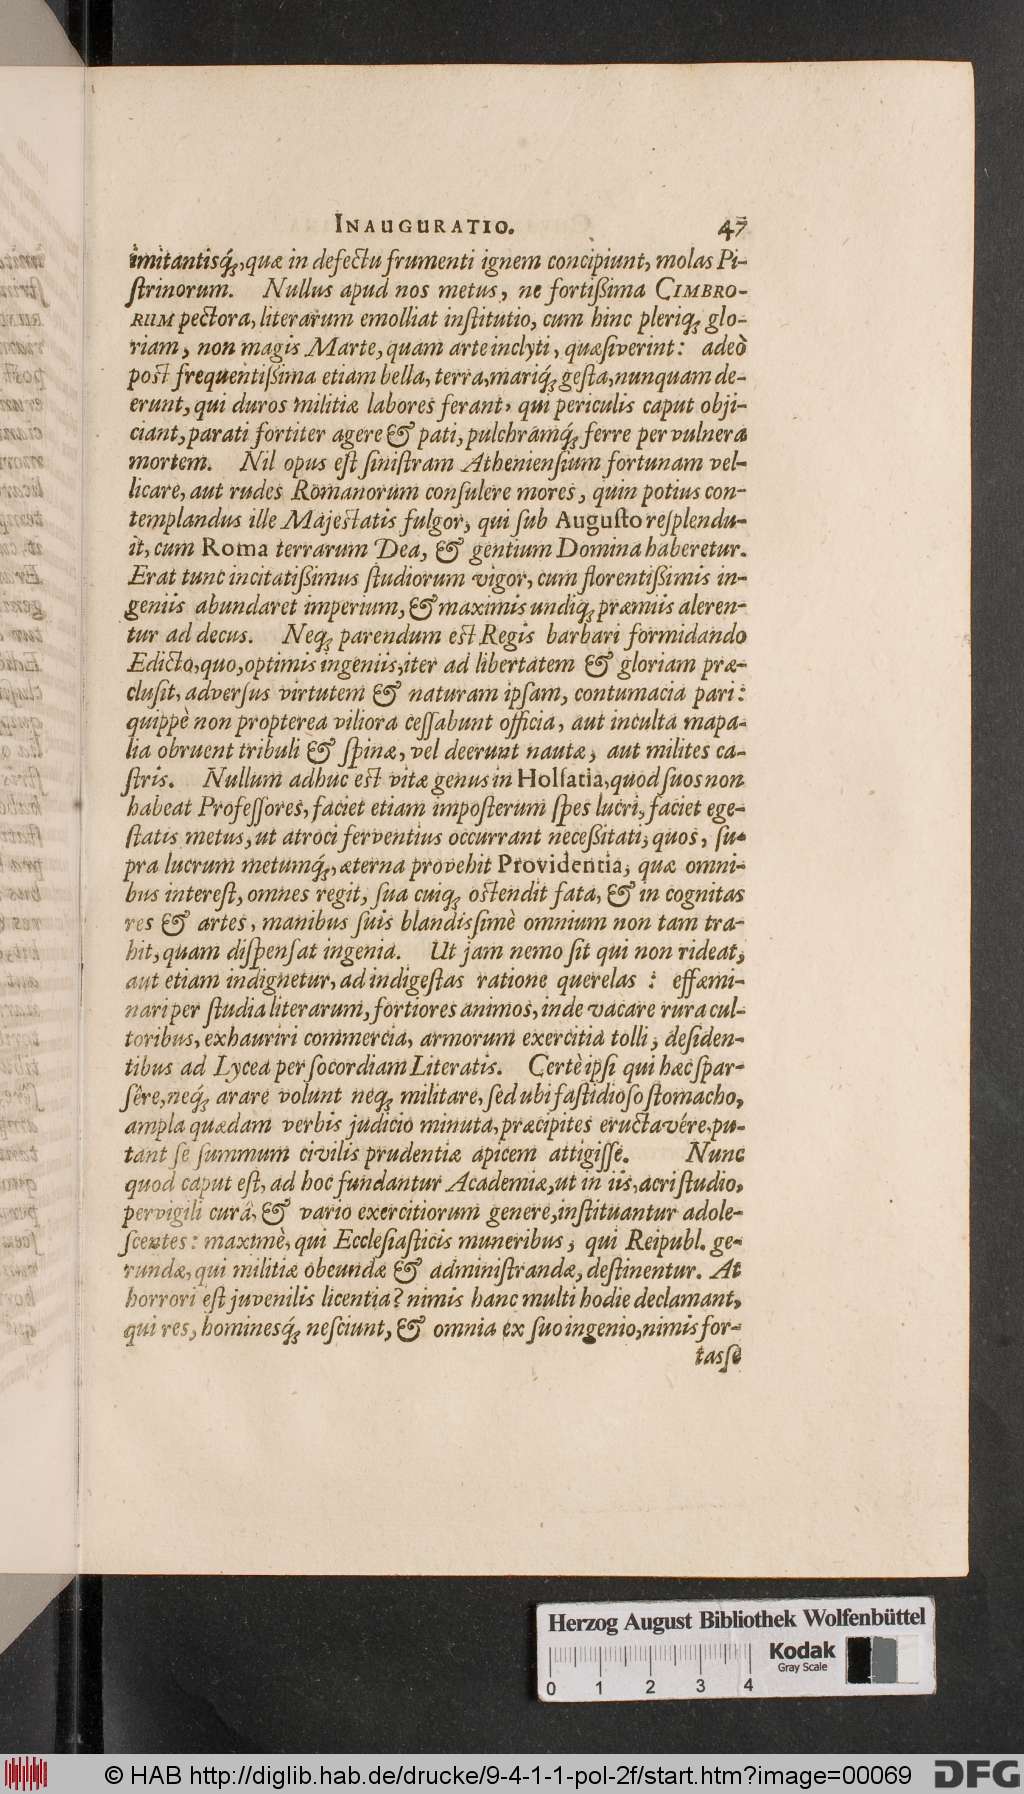 INAUGURATIO. 47
imitantisq́;, quæ in defectu frumenti ignem concipiunt, molas Pi-
ſtrinorum. Nullus apud nos metus, ne fortißima CIMBRO-
RUM pectora, literarum emolliat inſtitutio, cum hinc pleriq; glo-
riam, non magis Marte, quam arte inclyti, quæſiverint: adeò
poſt frequentißima etiam bella, terra, mariq́; geſta, nunquam de-
erunt, qui duros militiæ labores ferant, qui periculis caput obji-
ciant, parati fortiter agere & pati, pulchramq́; ferre per vulnera
mortem. Nil opus eſt ſiniſtram Athenienſium fortunam vel-
licare, aut rudes Romanorum conſulere mores, quin potius con-
templandus ille Majeſtatis fulgor, qui ſub Auguſto reſplendu-
it, cum Roma terrarum Dea, & gentium Domina haberetur.
Erat tunc incitatißimus ſtudiorum vigor, cum florentißimis in-
geniis abundaret imperium, & maximis undiq; præmiis aleren-
tur ad decus. Neq; parendum eſt Regis barbari formidando
Edicto, quo, optimis ingeniis, iter ad libertatem & gloriam præ-
cluſit, adverſus virtutem & naturam ipſam, contumacia pari:
quippè non propterea viliora ceſſabunt officia, aut inculta mapa-
lia obruent tribuli & ſpinæ, vel deerunt nautæ, aut milites ca-
ſtris. Nullum adhuc eſt vitæ genus in Holſatia, quod ſuos non
habeat Profeſſores, faciet etiam impoſterum ſpes lucri, faciet ege-
ſtatis metus, ut atroci ferventius occurrant neceßitati, quos, ſu-
pra lucrum metumq́;, æterna provehit Providentia, quæ omni-
bus intereſt, omnes regit, ſua cuiq; oſtendit fata, & in cognitas
res & artes, manibus ſuis blandisſimè omnium non tam tra-
hit, quam diſpenſat ingenia. Ut jam nemo ſit qui non rideat,
aut etiam indignetur, ad indigeſtas ratione querelas : effæmi-
nari per ſtudia literarum, fortiores animos, inde vacare rura cul-
toribus, exhauriri commercia, armorum exercitia tolli, deſiden-
tibus ad Lycea per ſocordiam Literatis. Certè ipſi qui hæc ſpar-
ſêre, neq́; arare volunt neq; militare, ſed ubi faſtidioſo ſtomacho,
ampla quædam verbis judicio minuta, præcipites eructavére, pu-
tant ſe ſummum civilis prudentiæ apicem attigiſſe. Nunc
quod caput eſt, ad hoc fundantur Academiæ, ut in iis, acri ſtudio,
pervigili curâ, & vario exercitiorum genere, inſtituantur adole-
ſcentes: maximè, qui Eccleſiaſticis muneribus, qui Reipubl. ge-
rundæ, qui militiæ obeundæ & adminiſtrandæ, deſtinentur. At
horrori eſt juvenilis licentia? nimis hanc multi hodie declamant,
qui res, hominesq́; neſciunt, & omnia ex ſuo ingenio, nimis for-
tasſe
Herzog August Bibliothek Wolfenbüttel
Kodak
Gray Scale
0 1 2 3 4
© HAB http://diglib.hab.de/drucke/9-4-1-1-pol-2f/start.htm?image=00069 DFG